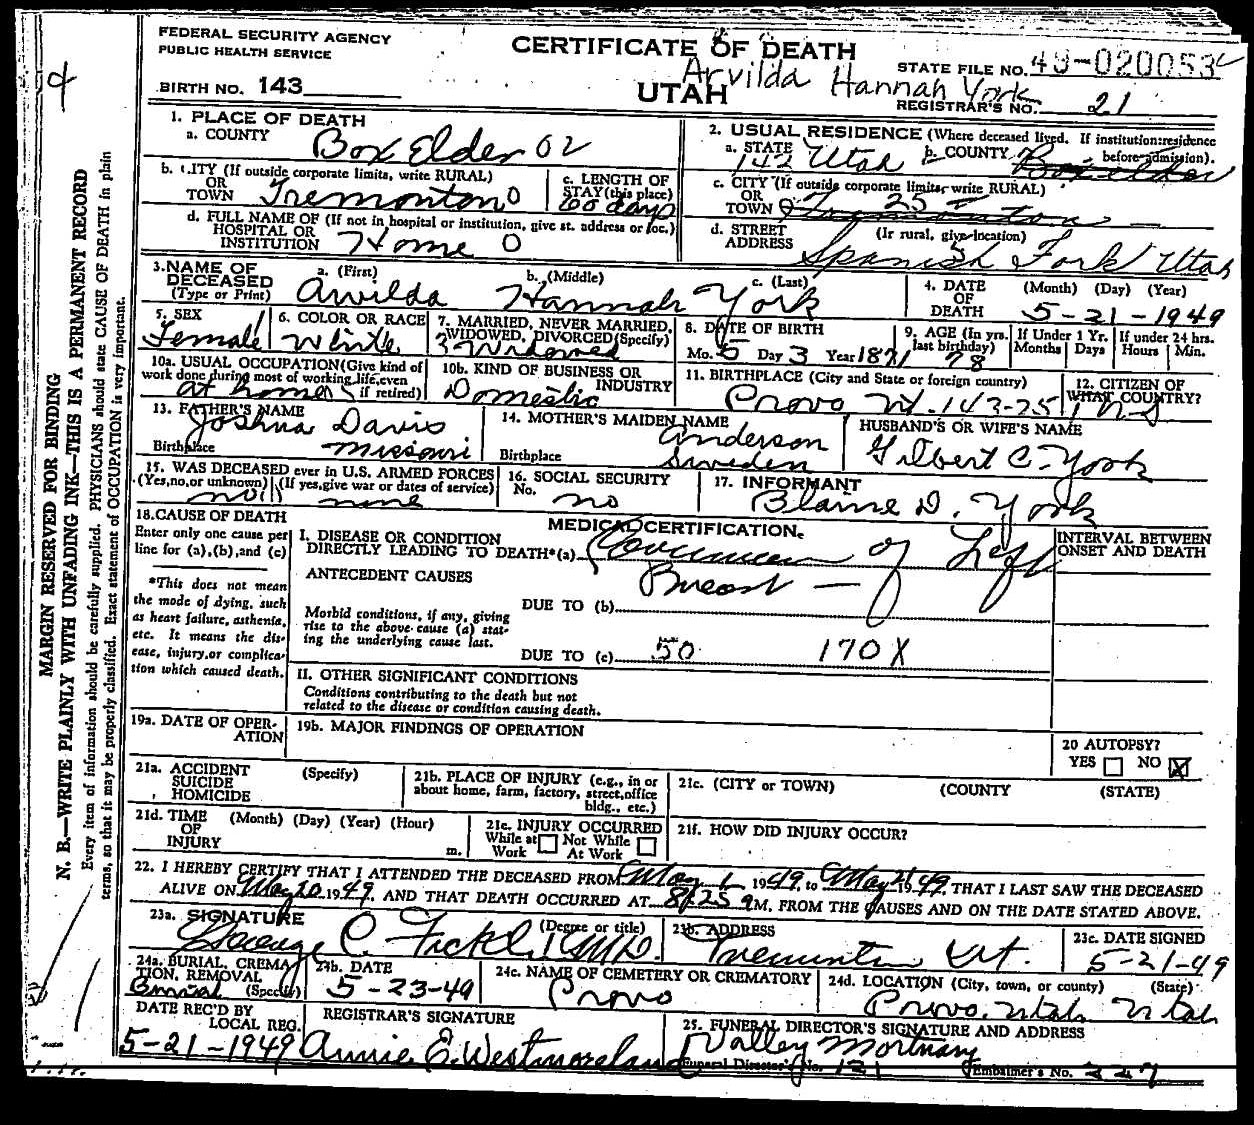 FEDERAL SECURITY AGENCY
PUBLIC HEALTH SERVICE
CERTIFICATE OF DEATH
UTAH
Arvilda Hannah York
STATE FILE NO. 49-020053
REGISTRAR'S NO. 21
BIRTH NO. 143
MARGIN RESERVED FOR BINDING
N. B.—WRITE PLAINLY WITH UNFADING INK—THIS IS A PERMANENT RECORD
Every item of information should be carefully supplied. PHYSICIANS should state CAUSE OF DEATH in plain
terms, so that it may be properly classified. Exact statement of OCCUPATION is very important.
1. PLACE OF DEATH
a. COUNTY Box Elder 02
b. CITY (If outside corporate limits, write RURAL)
OR
TOWN Tremonton 0
c. LENGTH OF
STAY (this place)
60 days
d. FULL NAME OF (If not in hospital or institution, give st. address or loc.)
HOSPITAL OR
INSTITUTION Home 0
2. USUAL RESIDENCE (Where deceased lived. If institution:residence
before admission).
a. STATE 142 Utah b. COUNTY Box Elder
c. CITY (If outside corporate limits write RURAL)
OR 25
TOWN Tremonton
d. STREET (If rural, give location)
ADDRESS Spanish Fork Utah
3. NAME OF
DECEASED
(Type or Print)
a. (First) b. (Middle) c. (Last)
Arvilda Hannah York
4. DATE
OF
DEATH
(Month) (Day) (Year)
5-21-1949
5. SEX
Female
6. COLOR OR RACE
White
7. MARRIED, NEVER MARRIED,
WIDOWED, DIVORCED (Specify)
3 Widowed
8. DATE OF BIRTH
Mo. 5 Day 3 Year 1871
9. AGE (In yrs.
last birthday)
78
If Under 1 Yr.
Months Days
If under 24 hrs.
Hours Min.
10a. USUAL OCCUPATION (Give kind of
work done during most of working life, even
if retired)
at home
10b. KIND OF BUSINESS OR
INDUSTRY
Domestic
11. BIRTHPLACE (City and State or foreign country)
Provo Ut. 143-25
12. CITIZEN OF
WHAT COUNTRY?
U-S
13. FATHER'S NAME
Joshua Davis
Birthplace Missouri
14. MOTHER'S MAIDEN NAME
Anderson
Birthplace Sweden
HUSBAND'S OR WIFE'S NAME
Gilbert C. York
15. WAS DECEASED ever in U.S. ARMED FORCES
(Yes,no,or unknown) (If yes,give war or dates of service)
no none
16. SOCIAL SECURITY
No. no
17. INFORMANT
Blaine D. York
18. CAUSE OF DEATH
Enter only one cause per
line for (a),(b),and (c)
*This does not mean
the mode of dying, such
as heart failure, asthenia,
etc. It means the dis-
ease, injury,or complica-
tion which caused death.
MEDICAL CERTIFICATION
I. DISEASE OR CONDITION
DIRECTLY LEADING TO DEATH*(a) Carcinoma of Left
Breast
ANTECEDENT CAUSES
DUE TO (b)
Morbid conditions, if any, giving
rise to the above cause (a) stat-
ing the underlying cause last.
DUE TO (c) 50 170X
INTERVAL BETWEEN
ONSET AND DEATH
II. OTHER SIGNIFICANT CONDITIONS
Conditions contributing to the death but not
related to the disease or condition causing death.
19a. DATE OF OPER-
ATION
19b. MAJOR FINDINGS OF OPERATION
20 AUTOPSY?
YES NO X
21a. ACCIDENT
SUICIDE
HOMICIDE
(Specify)
21b. PLACE OF INJURY (e.g., in or
about home, farm, factory, street,office
bldg., etc.)
21c. (CITY OR TOWN) (COUNTY) (STATE)
21d. TIME
OF
INJURY
(Month) (Day) (Year) (Hour)
m.
21e. INJURY OCCURRED
While at Work Not While At Work
21f. HOW DID INJURY OCCUR?
22. I HEREBY CERTIFY THAT I ATTENDED THE DECEASED FROM May 1 1949 to May 21 1949, THAT I LAST SAW THE DECEASED
ALIVE ON May 20 1949, AND THAT DEATH OCCURRED AT 8:25 M, FROM THE CAUSES AND ON THE DATE STATED ABOVE.
23a. SIGNATURE (Degree or title)
C. Fickl MD.
23b. ADDRESS
Tremonton Ut.
23c. DATE SIGNED
5-21-49
24a. BURIAL, CREMA-
TION, REMOVAL
(Specify)
Burial
24b. DATE
5-23-49
24c. NAME OF CEMETERY OR CREMATORY
Provo
24d. LOCATION (City, town, or county) (State)
Provo, Utah Utah
DATE REC'D BY
LOCAL REG.
5-21-1949
REGISTRAR'S SIGNATURE
Annie E. Westmoreland
25. FUNERAL DIRECTOR'S SIGNATURE AND ADDRESS
Valley Mortuary
Funeral Director's No. 131 Embalmer's No. 227